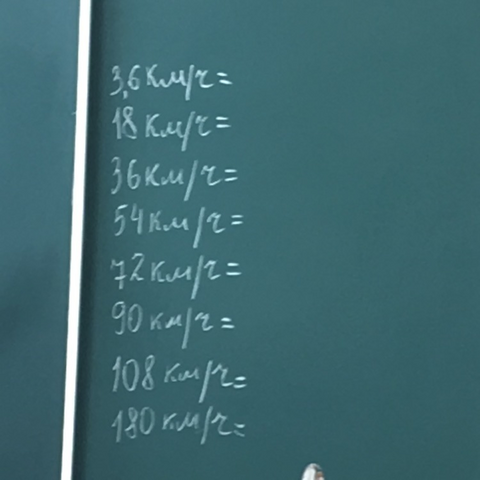 3,6 км/ч =
18 км/ч =
36 км/ч =
54 км/ч =
72 км/ч =
90 км/ч =
108 км/ч =
180 км/ч =